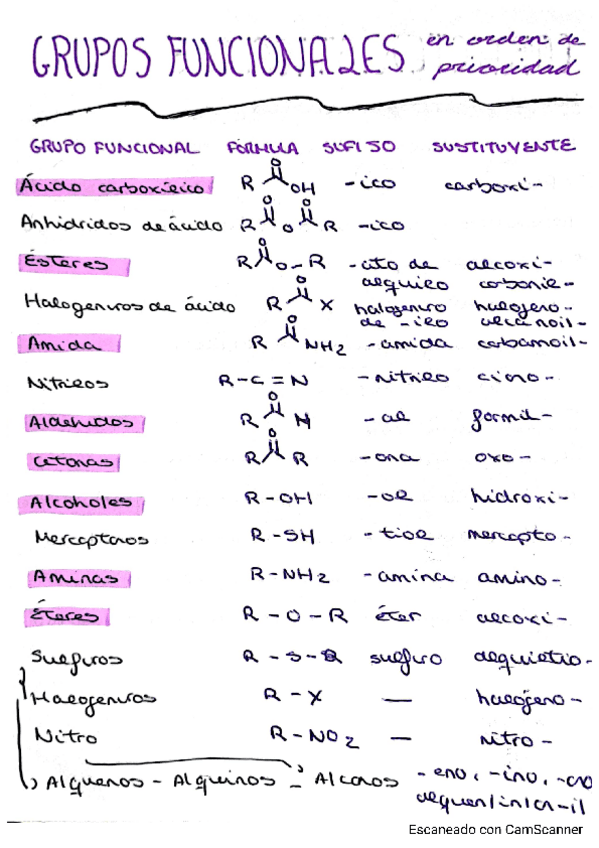 GRUPOS FUNCIONALES en orden de prioridad
GRUPO FUNCIONAL FÓRMULA SUFIJO SUSTITUYENTE
Ácido carboxílico R O OH -ico carboxi-
Anhídridos de ácido R O O O R -ico
Ésteres R O O-R -ato de alquilo alcoxi- carbonil-
Halogenuros de ácido R O X halogenuro de -ilo halógeno- alcanoil-
Amida R O NH2 -amida carbamoil-
Nitrilos R-C≡N -nitrilo ciano-
Aldehidos R O H -al formil-
Cetonas R O R -ona oxo-
Alcoholes R-OH -ol hidroxi-
Mercaptanos R-SH -tiol mercapto-
Aminas R-NH2 -amina amino-
Éteres R-O-R éter alcoxi-
Sulfuros R-S-R sulfuro alquiltio-
Halogenuros R-X — halógeno-
Nitro R-NO2 — nitro-
Alquenos - Alquinos - Alcanos -eno, -ino, -ano
alquen/in/an-il
Escaneado con CamScanner